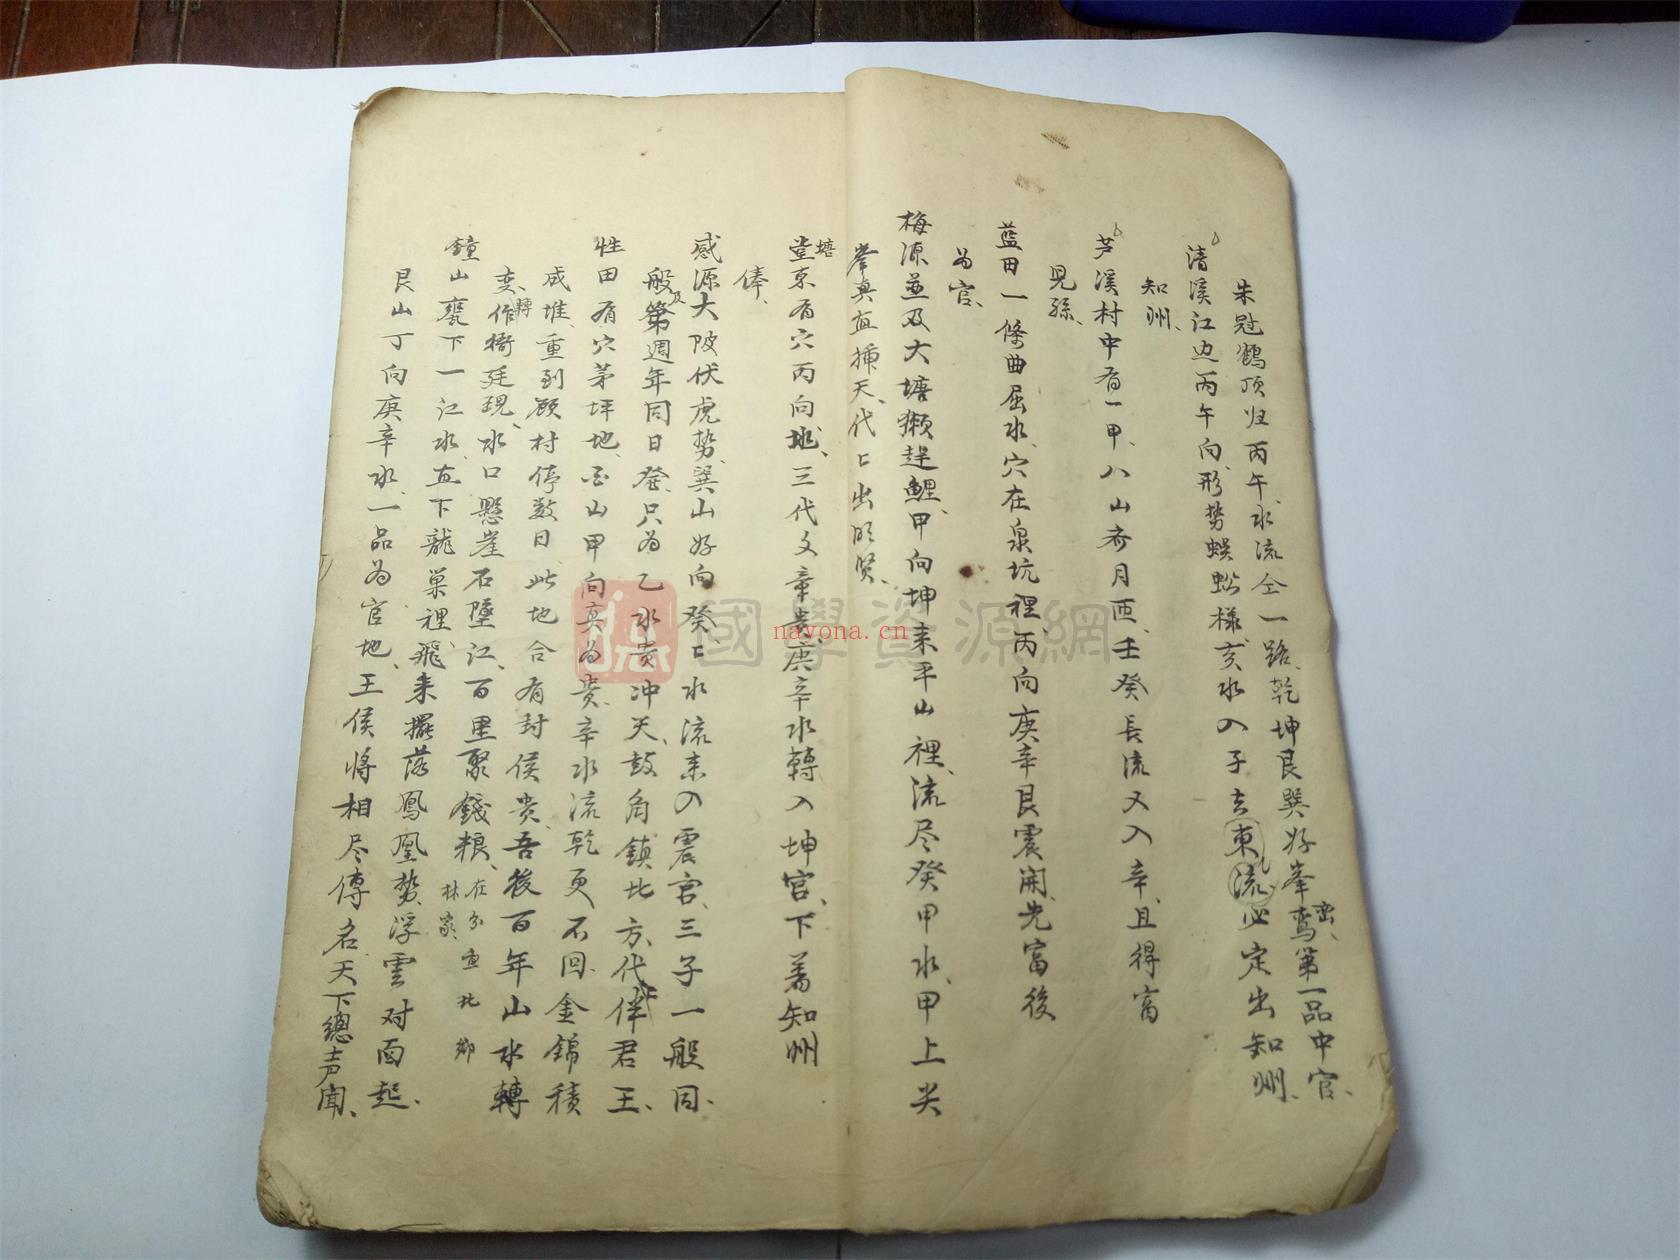 朱冠鶴顶归丙午、水流仝一路、乾坤艮巽好峯鸾峦、第一品中官、
清溪江边丙午向、形势蜈蚣様、亥水入子去東流必定出知州、
知州、
芦溪村中有一甲、八山齐月西、壬癸長流又入辛、且得富
見孫、
蓝田一條曲屈水、穴在泉坑裡、丙向庚辛艮震闲、先富後
为官、
梅源並及大塘獭趕鯉、甲向坤来平山裡、流尽癸甲水、甲上尖
峯真直挿天、代代出明贤、
塘
堂东有穴丙向地、三代文章贵、庚辛水轉入坤宫、下着知州
俸、
感源大陂伏虎势、巽山好向癸、癸水流来入震宫、三子一般同、
般及第週年同日登、只为乙水贵冲天、鼓角鎮北方、代代伴君王、
牲田有穴茅坪地、酉山甲向真为贵、辛水流乾更不回、金錦積
成堆、重到顾村停数日、此地合有封侯贵、吾後百年山水轉
变、轉作衙廷現、水口懸崖石墜江、百里聚錢粮、
在分宜北鄉
林家
鐘山甕下一江水、直下龍巢裡、飛来擺落鳳凰势、浮雲对面起、
艮山丁向庚辛水、一品为官地、王侯将相尽傳名、天下總声闻、
國學資源網
nayona.cn